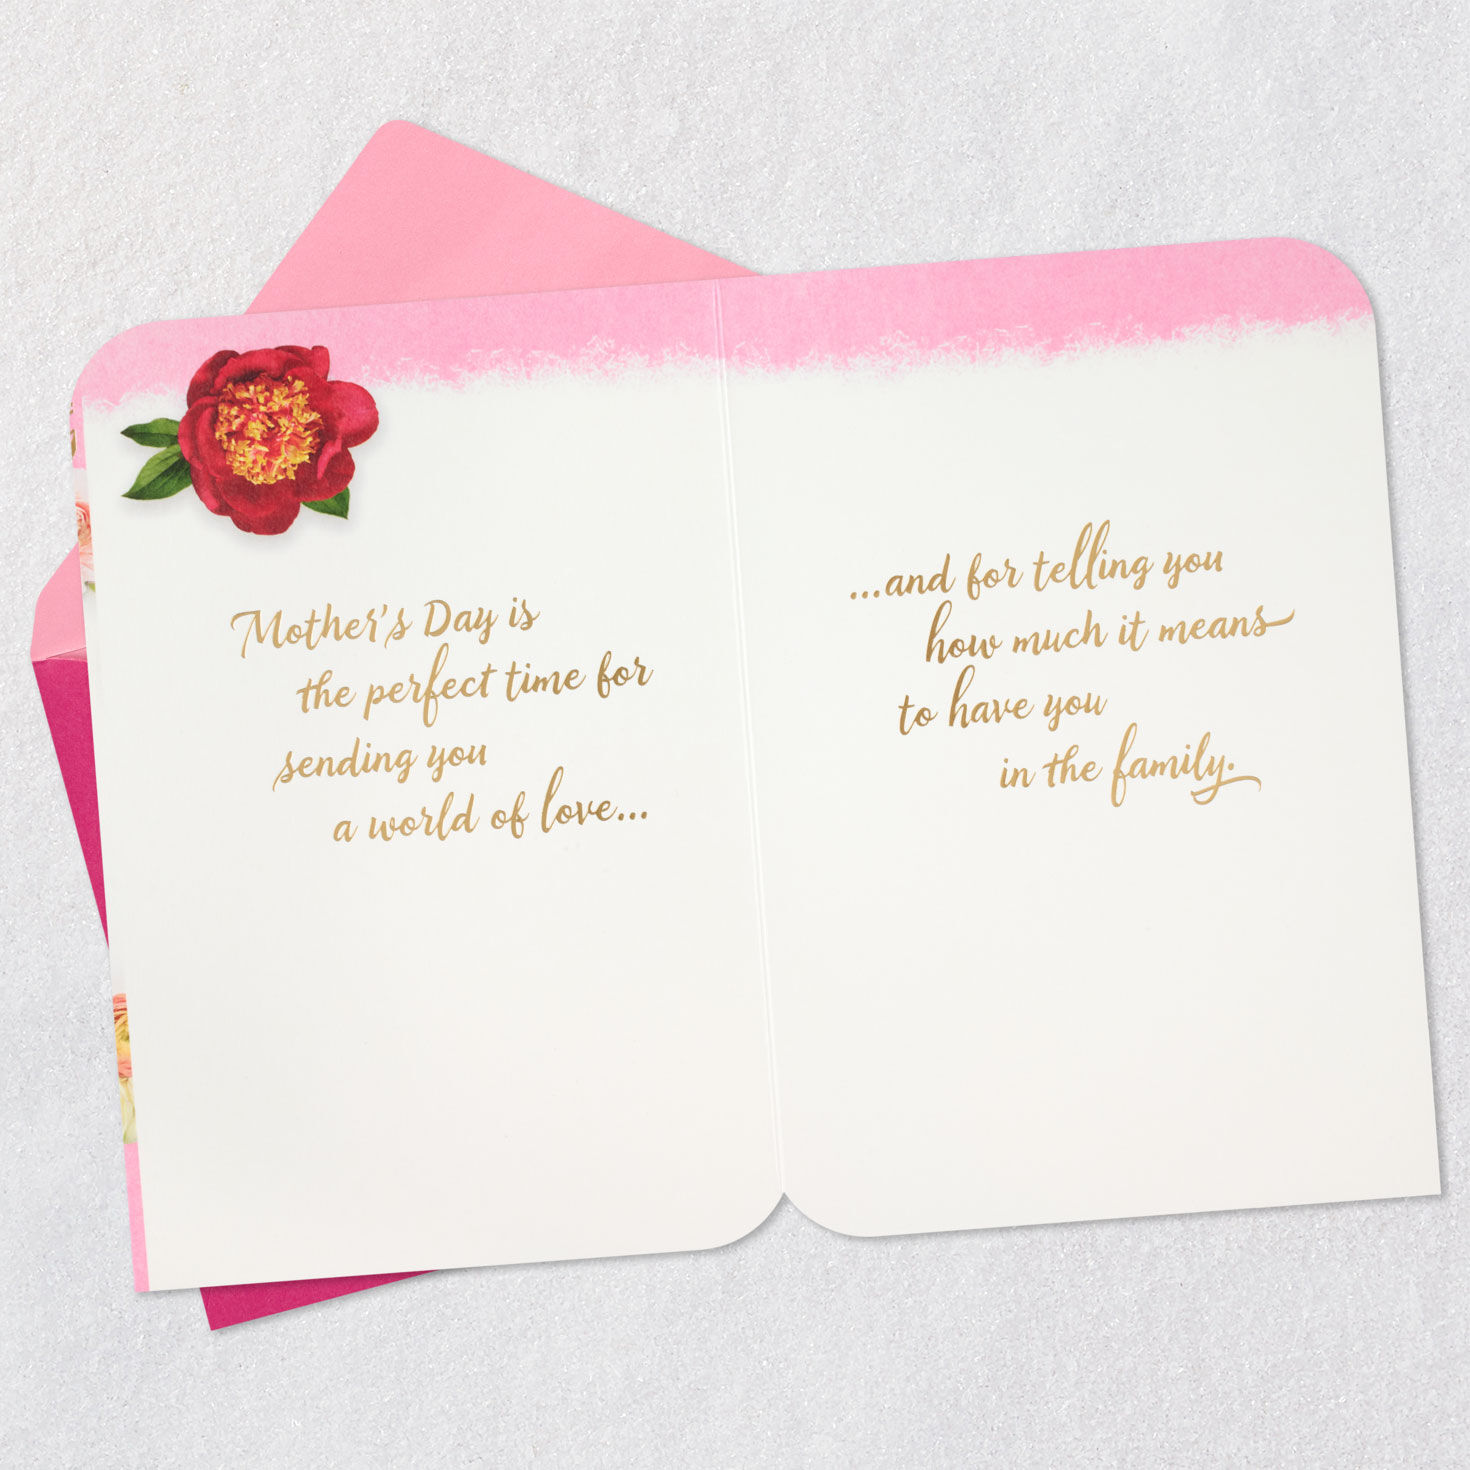 Mother's Day is
the perfect time for
sending you
a world of love...
...and for telling you
how much it means
to have you
in the family.